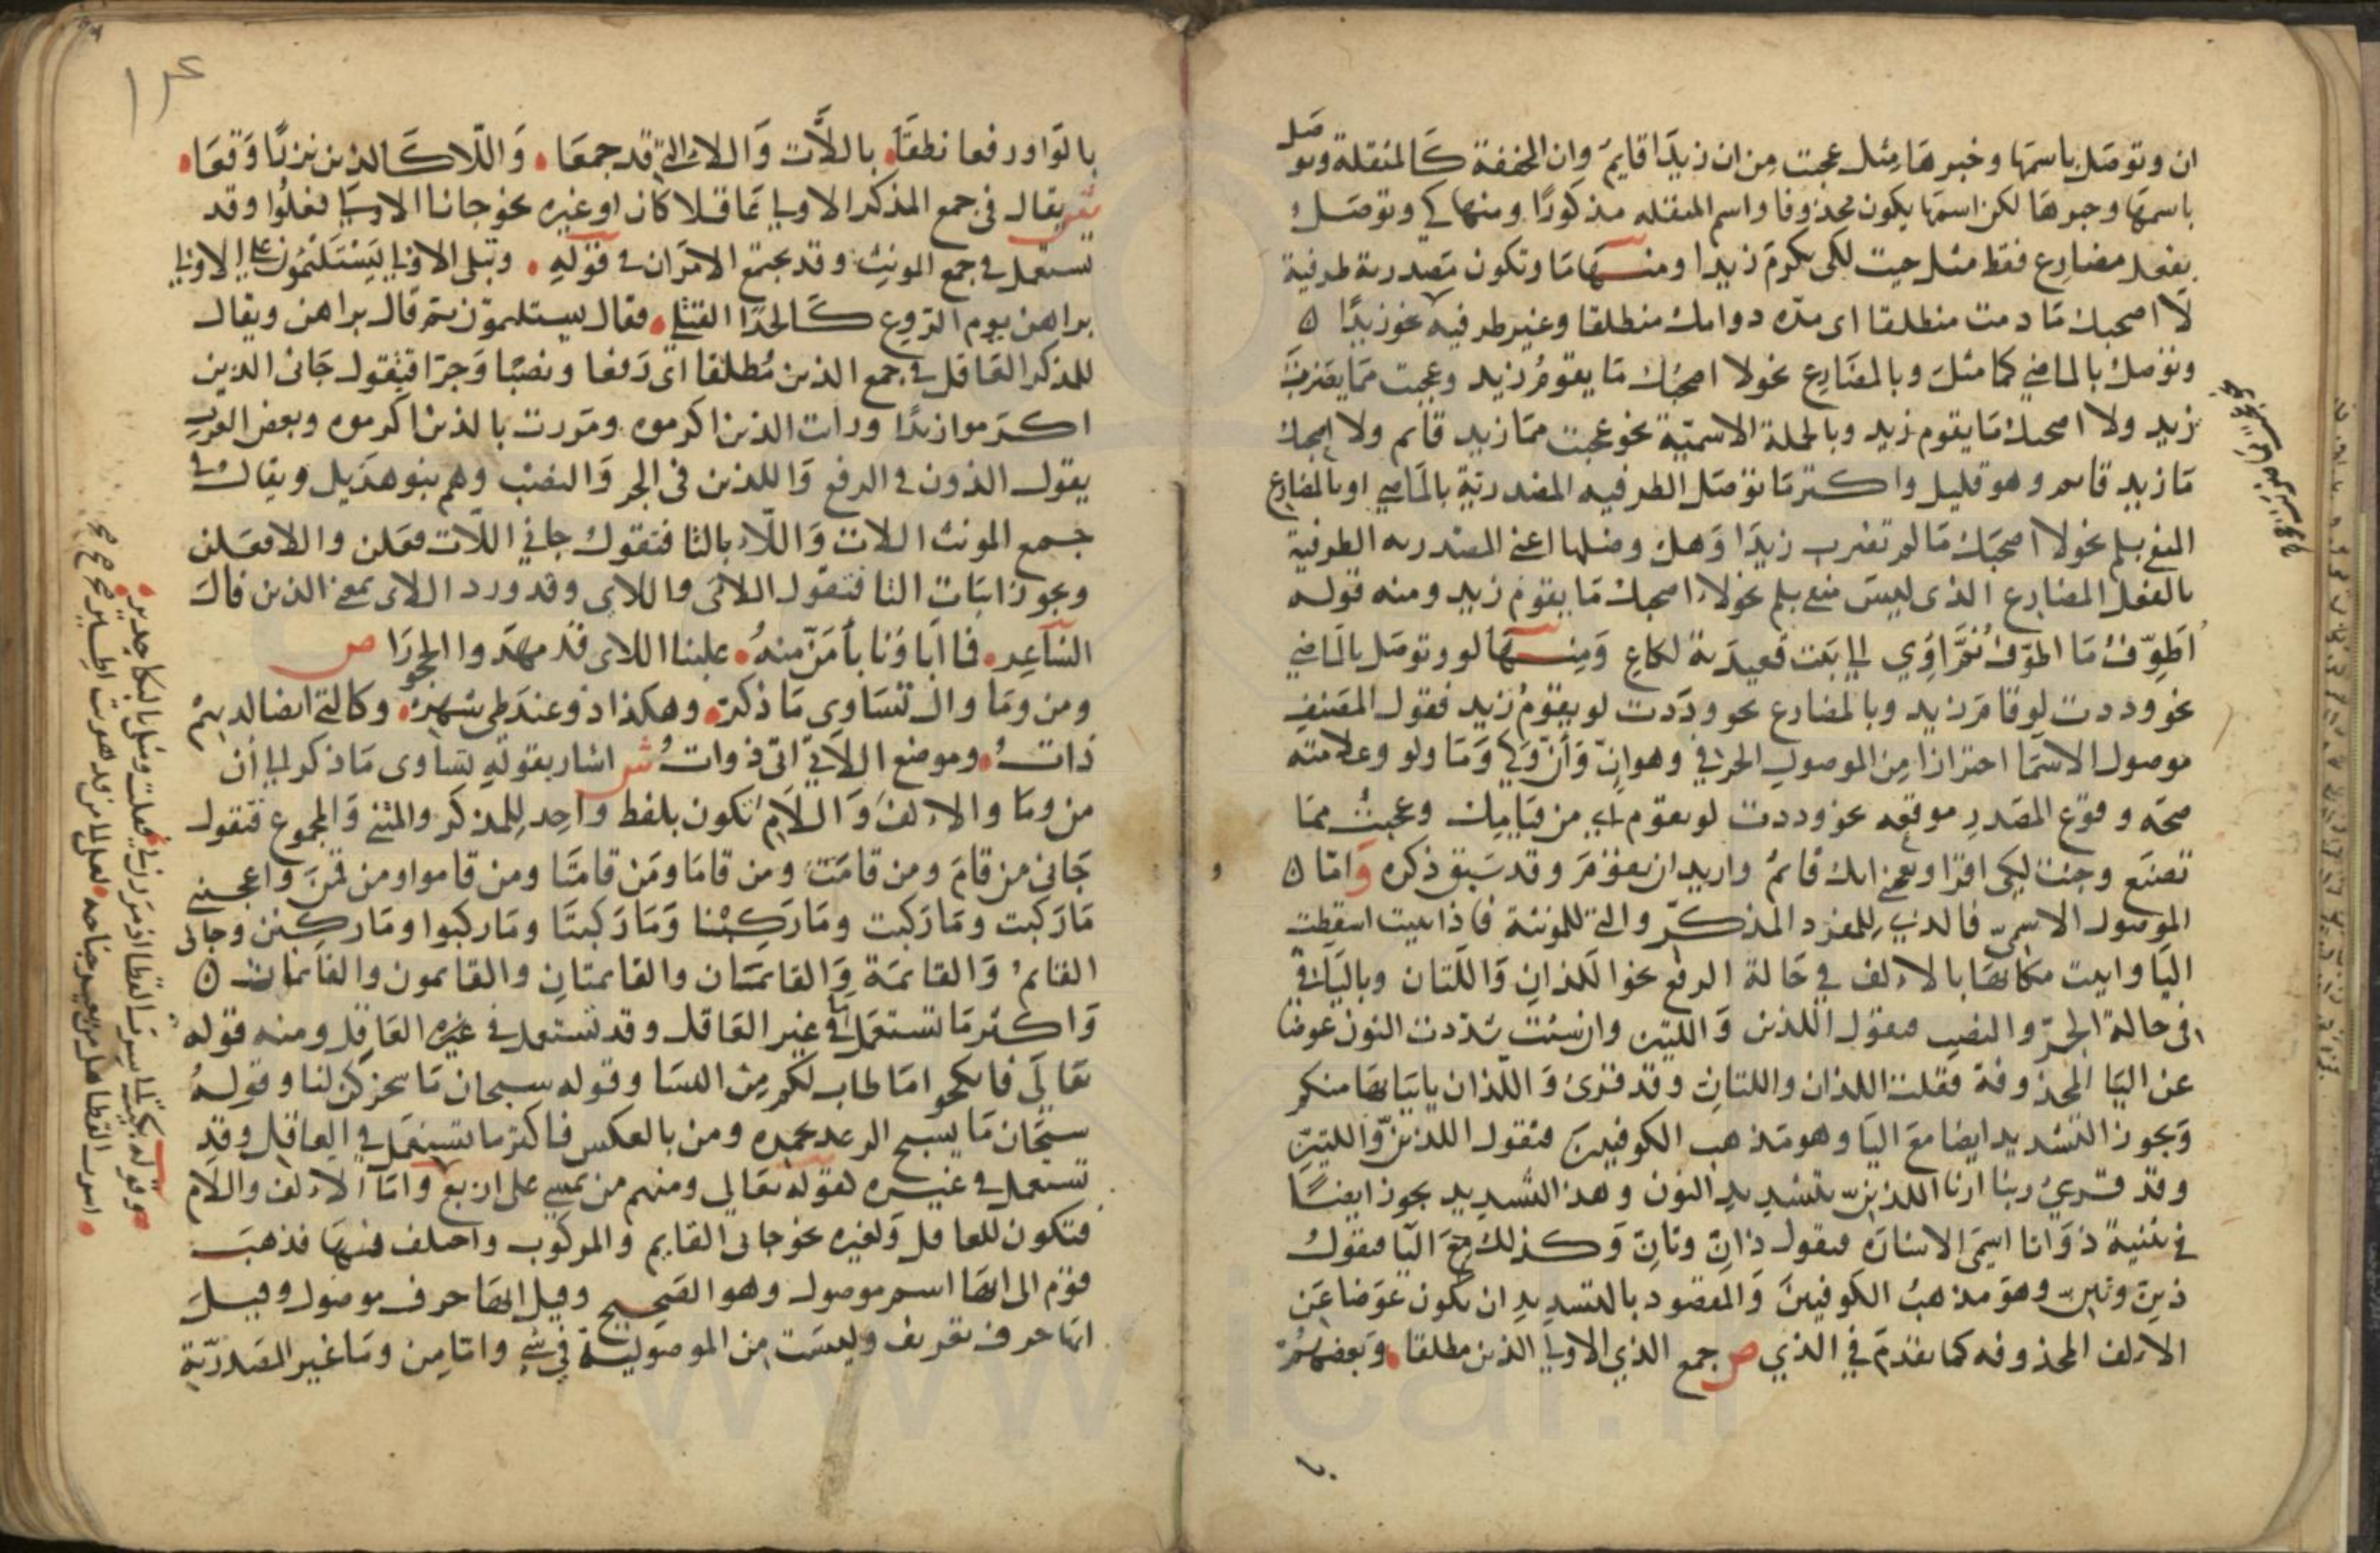 ان وتوصل باسمها وخبرها مثل عجبت من ان زيدا قايم وان المخففة كالمثقلة وتوصل
باسمها وخبرها لكن اسمها يكون محذوفا واسم المثقله مذكورا ومنها كي وتوصل
بفعل مضارع فقط مثل جيت لكى يكرم زيدا ومنها ما وتكون مصدرية ظرفية
لا اصحبك ما دمت منطلقا اى مده دوامك منطلقا وغير ظرفيه نحو زيدا ه
وتوصل بالماضي كما مثل وبالمضارع نحو لا اصحبك ما يقوم زيد وعجبت مما يضرب
زيد ولا اصحبك ما يقوم زيد وبالجملة الاسمية نحو عجبت مما زيد قايم ولا اصحبك
ما زيد قايم وهو قليل واكثر ما توصل الظرفيه المصدرية بالماضي او بالمضارع
المنفي بلم نحو لا اصحبك ما لم تضرب زيدا وهل وصلها اعني المصدريه الظرفية
بالفعل المضارع الذى ليس منفي بلم نحو لا اصحبك ما يقوم زيد ومنه قوله
اطوف ما اطوف ثم اوي الى بيت قعيدته لكاع ومنها لو وتوصل بالماضي
نحو وددت لو قام زيد وبالمضارع نحو وددت لو يقوم زيد فقول المصنف
موصول الاسما احترازا من الموصول الحرفي وهو ان وأن وكي وما ولو وعلامته
صحه وقوع المصدر موقعه نحو وددت لو تقوم اي من قيامك وعجبت مما
تصنع وجئت لكي اقرا ويعجبني انك قايم واريد ان تقوم وقد سبق ذكره واما ه
الموصول الاسمي فالذي للمفرد المذكر والتي للمونثة فاذا ثنيت اسقطت
اليا واتيت مكانها بالالف في حالة الرفع نحو اللذان واللتان وباليا
في حالة الجر والنصب فتقول اللذين واللتين وان شئت شددت النون عوضا
عن اليا المحذوفة فقلت اللذان واللتان وقد قرئ واللذان ياتيانها منكم
ويجوز التشديد ايضا مع اليا وهو مذهب الكوفيين فتقول اللذين واللتين
وقد قرئ ربنا ارنا اللذين بتشديد النون وهذا التشديد يجوز ايضا
في تثنية ذا وتا اسمي الاشارة فتقول ذان وتان وكذلك مع اليا فتقول
ذين وتين وهو مذهب الكوفيين والمقصود بالتشديد ان يكون عوضا عن
الالف المحذوفه كما تقدم في الذي ص جمع الذي الاولى الذين مطلقا وبعضهم
بالواو رفعا نطقا باللات واللاء التي قد جمعا واللاء كالذين نزرا وقعا
ش يقال في جمع المذكر الاولى عاقلا كان او غيره نحو جاانا الاولى فعلوا وقد
تستعمل في جمع المونث وقد يجتمع الامران في قوله وتبلى الاولى يستلئمون على الاولى
براهن يوم الروع كالحدا القبل فقال يستلئمون ثم قال براهن ويقال
للمذكر العاقل في جمع الذين مطلقا اى رفعا ونصبا وجرا فتقول جانى الذين
اكرموا زيدا ورأيت الذين اكرموه ومررت بالذين اكرموه وبعض العرب
يقول الذون في الرفع والذين في الجر والنصب وهم بنو هذيل ويقال في
جمع المونث اللات واللاء بالتا فتقول جاني اللات فعلن واللا فعلن
ويجوز اثبات اليا فتقول اللاتى واللاى وقد ورد اللاى بمعنى الذين قال
الشاعر فما اباؤنا بأمن منه علينا اللاى قد مهدوا الحجورا ص
ومن وما وال تساوى ما ذكر وهكذا ذو عند طي شهر وكالتي ايضا لديهم
ذات وموضع اللاتي اتى ذوات ش اشار بقوله تساوى ما ذكر الى ان
من وما والالف واللام تكون بلفظ واحد للمذكر والمثنى والمجموع فتقول
جانى من قام ومن قامت ومن قاما ومن قامتا ومن قاموا ومن قمن واعجبني
ما ركب وما ركبت وما ركبا وما ركبتا وما ركبوا وما ركبن وجانى
القائم والقائمة والقائمان والقائمتان والقائمون والقائمات ه
واكثر ما تستعمل ما في غير العاقل وقد تستعمل في العاقل ومنه قوله
تعالى فانكحوا ما طاب لكم من النسا وقوله سبحان ما سخركن لنا وقوله
سبحان ما يسبح الرعد بحمده ومن بالعكس فاكثر ما تستعمل في العاقل وقد
تستعمل في غيره لقوله تعالى ومنهم من يمشي على اربع واما الالف واللام
فتكون للعاقل ولغيره نحو جانى القايم والمركوب واختلف فيها فذهب
قوم الى انها اسم موصول وهو الصحيح وقيل انها حرف موصول وقيل
انها حرف تعريف وليست من الموصولية في شي واما من وما غير المصدرية